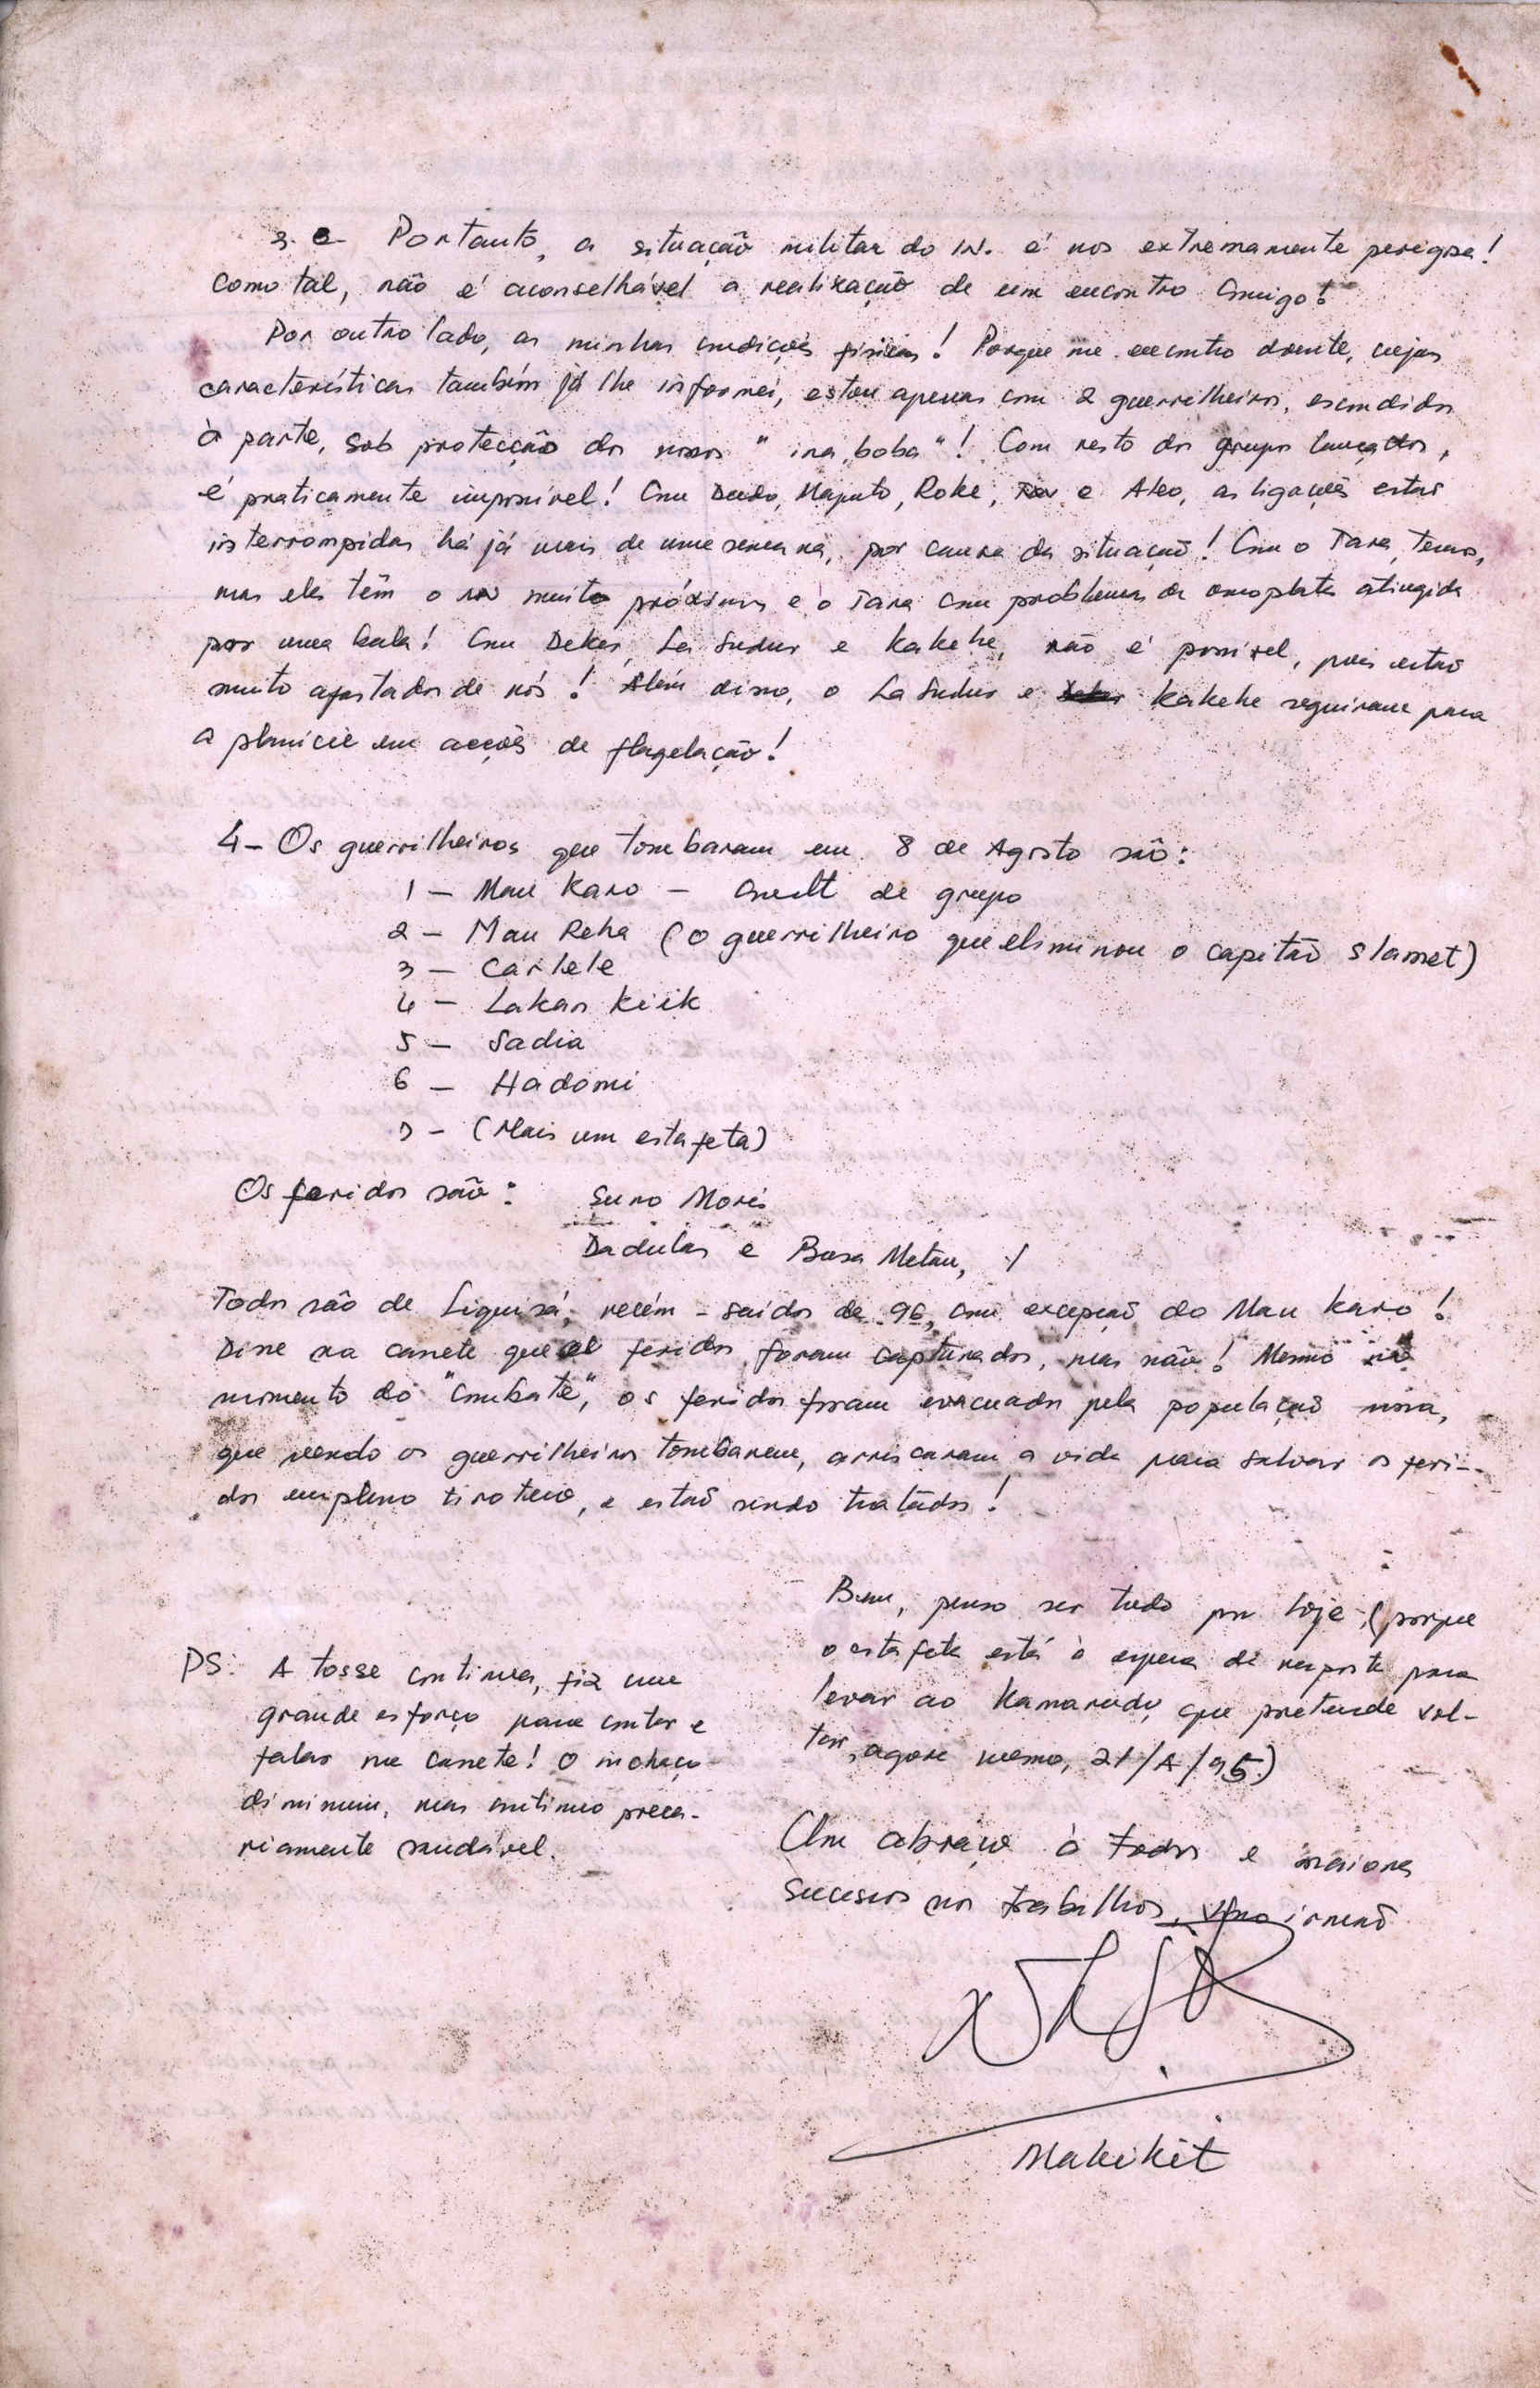 3. e- Portanto, a situação militar do IN. é nos extremamente perigosa!
Como tal, não é aconselhável a realização de um encontro comigo!
Por outro lado, as minhas condições físicas! Porque me encontro doente, cujas
características também já lhe informei, estou apenas com 2 guerrilheiros, escondidos
à parte, sob protecção dos nossos "ina, boba"! Com resto dos grupos lançados,
é praticamente impossível! Com Dudo, Maputo, Roke, e Ako, as ligações estão
interrompidas há já mais de uma semana, por causa da situação! Com o Tara, temos,
mas eles têm o IN muito próximos e o Tara com problemas da omoplata atingida
por uma bala! Com Deker, La Sudur e Kakehe, não é possível, pois estão
muito afastados de nós! Além disso, o La Sudur e Kakehe seguiram para
a planície em acções de flagelação!
4- Os guerrilheiros que tombaram em 8 de Agosto são:
1 - Mau Karo - de grupo
2 - Mau Reha (o guerrilheiro que eliminou o capitão Slamet)
3 - Carlele
4 - Lakan Kiik
5 - Sadia
6 - Hadomi
7 - (Mais um estafeta)
Os feridos são: Suro Moris
Dadulas e Busa Metan,
Todos são de Liquiçá, recém-saídos de 96, com excepção do Mau Karo!
Disse na cassete que feridos foram capturados, mas não! Mesmo no
momento do "combate", os feridos foram evacuados pela população nossa,
que vendo os guerrilheiros tombarem, arriscaram a vida para salvar os feri-
dos em pleno tiroteio, e estão sendo tratados!
Bem, penso ser tudo por hoje, (porque
o estafeta está à espera de resposta para
levar ao Kamarudy, que pretende vol-
tar, agora mesmo, 21/A/95)
PS: A tosse continua, fiz um
grande esforço para contar e
falar na cassete! O inchaço
diminuiu, mas continuo preca-
riamente saudável.
Um abraço à todos e maiores
sucessos nos trabalhos, irmão
Makikit